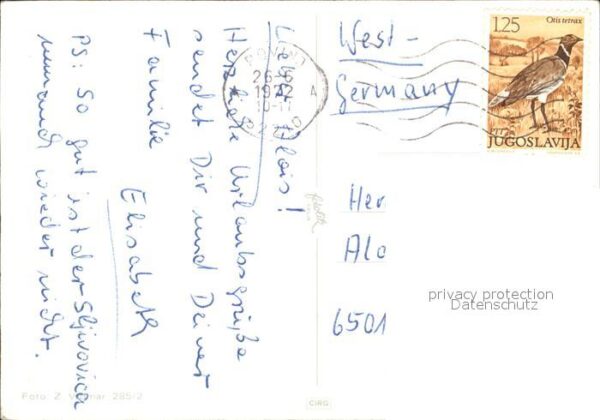 Lieber Alois!
Herzliche Urlaubsgrüße
sendet Dir und Deiner
Familie
Elisabeth
PS: So gut ist der Sljivovica
wieder nicht.
West-
Germany
Her
Alo
6501
26-6
1972
10-17
1.25
Otis tetrax
JUGOSLAVIJA
privacy protection
Datenschutz
Foto: Z.
285/2